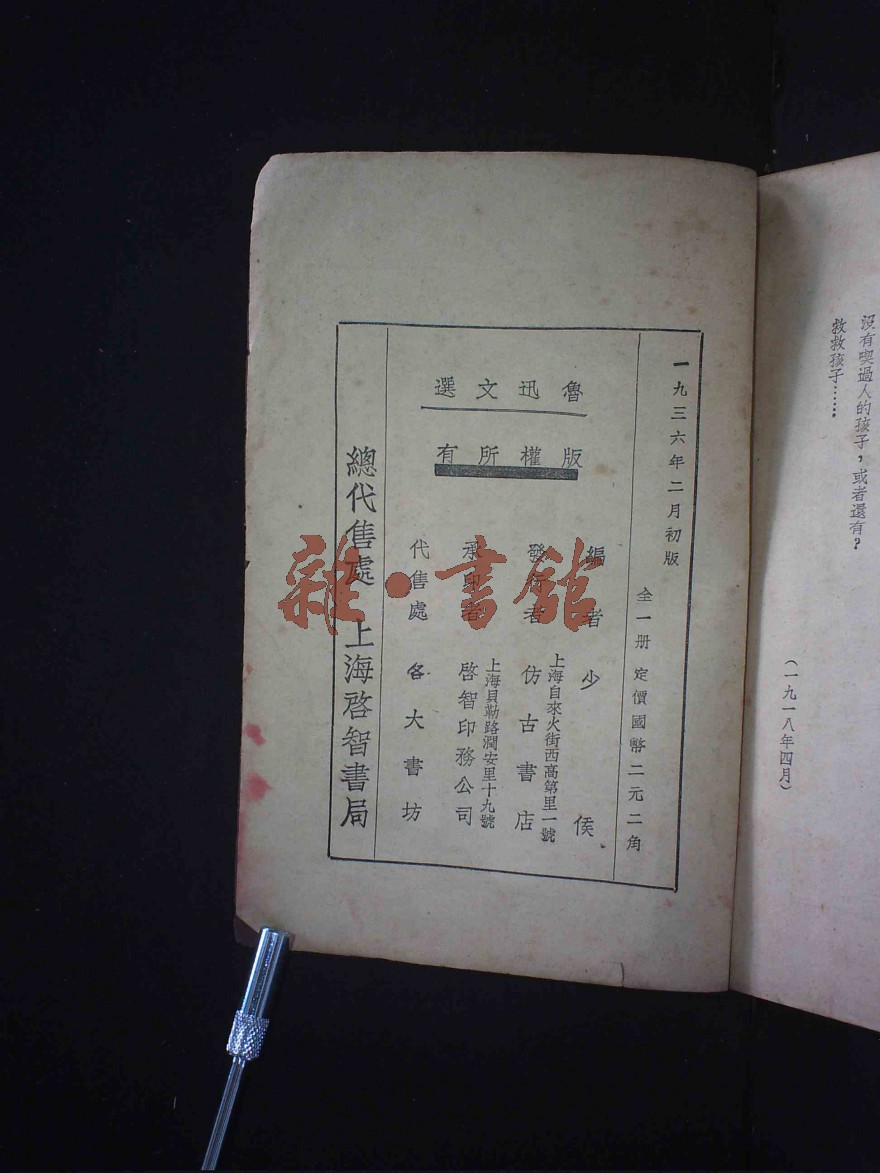 沒有喫過人的孩子，或者還有？
救救孩子……
（一九一八年四月）
一九三六年二月初版
全一册 定價國幣二元二角
魯迅文選
版權所有
編者 少侯
上海自來火街西高第里一號
發行者 仿古書店
上海貝勒路潤安里十九號
承印者 啓智印務公司
代售處 各大書坊
總代售處 上海啓智書局
雜·書館